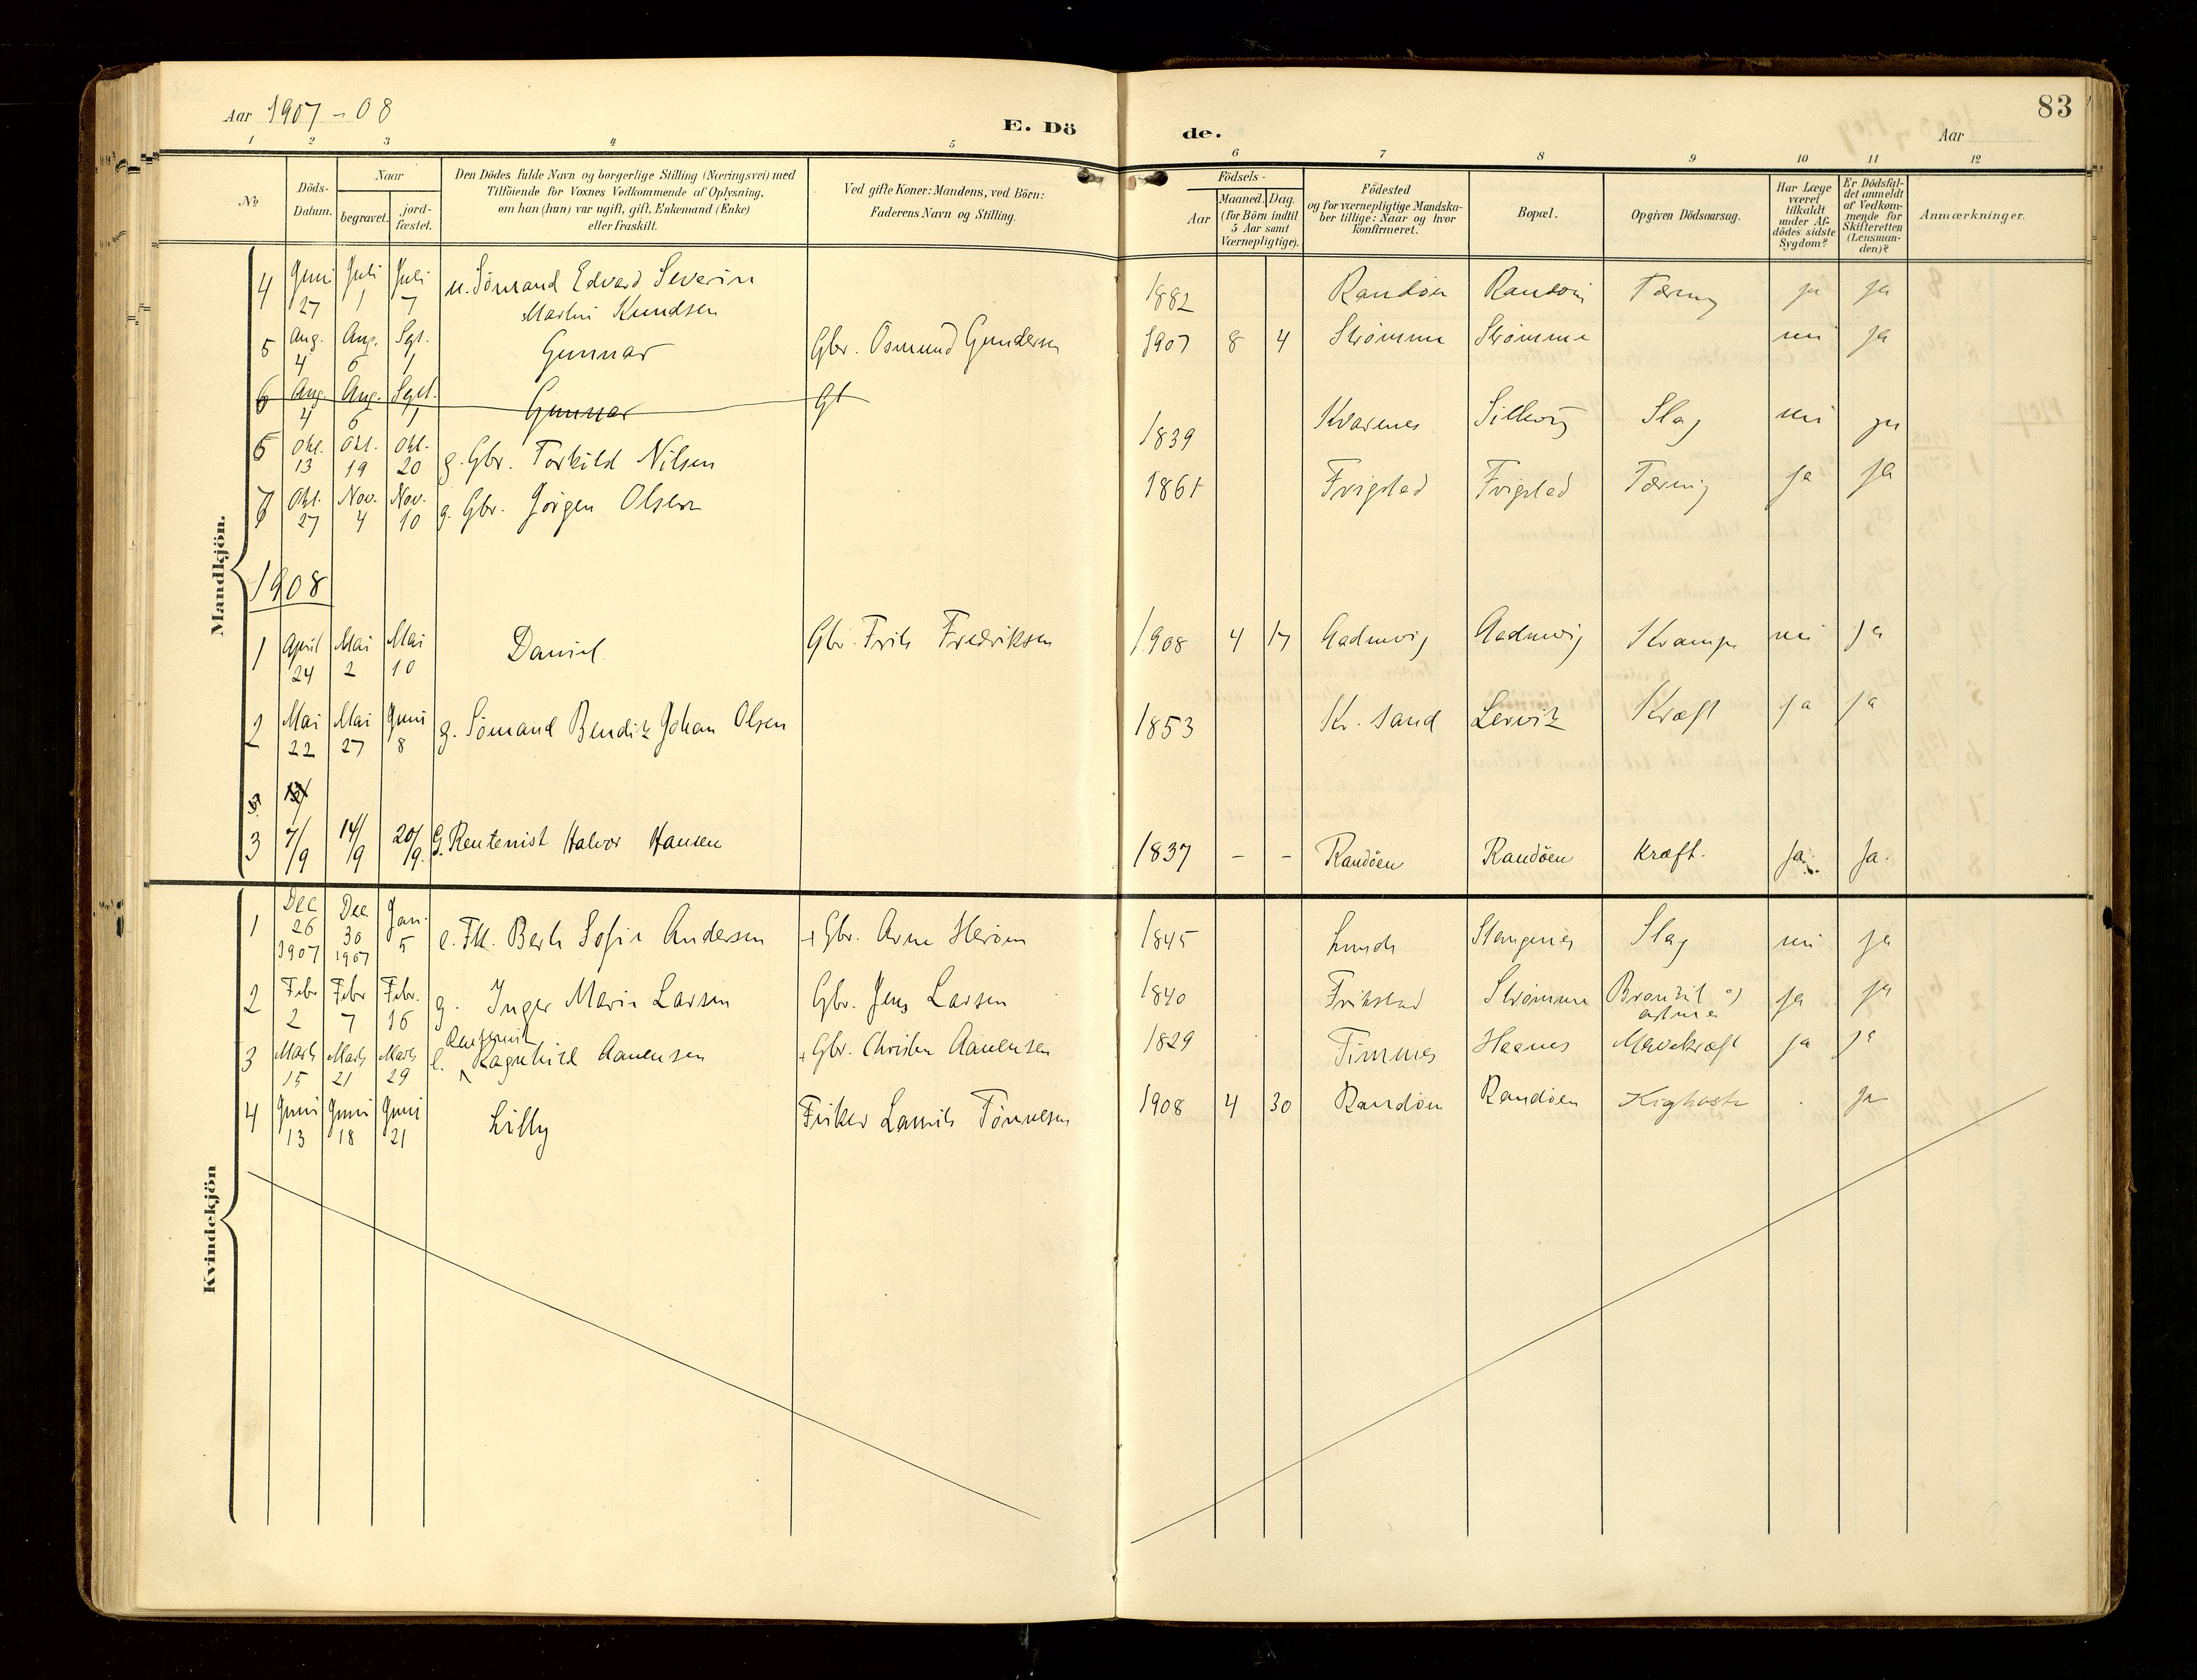 Aar 1907-08
E. Dö
de.
Aar
83
1 2 3 4 5 6 7 8 9 10 11 12
No
Döds-Datum.
Naar
begravet.
jord-fæstet.
Den Dödes fulde Navn og borgerlige Stilling (Næringsvei) med
Tilföiende for Voxnes Vedkommende af Oplysning,
om han (hun) var ugift, gift, Enkemand (Enke)
eller fraskilt.
Ved gifte Koner: Mandens, ved Börn:
Faderens Navn og Stilling.
Födsels-
Aar
Maaned. Dag.
(for Börn indtil
5 Aar samt
Værnepligtige).
Födested
og for værnepligtige Mandska-
ber tillige: Naar og hvor
konfirmeret.
Bopæl.
Opgiven Dödsaarsag.
Har Læge
været
tilkaldt
under Af-
dödes sidste
Sygdom?
Er Dödsfal-
det anmeldt
af Vedkom-
mende for
Skifteretten
(Lensman-
den)?
Anmærkninger.
Mandkjön.
4 Juni 27 Juli 1 Juli 7 u. Sömand Edvard Severin Martin Knudsen 1882 Randöen Randöen Tæring ja ja
5 Aug. 4 Aug. 6 Sept. 1 Gunnar Gbr. Osmund Gundersen 1907 8 4 Strömme Strömme nei ja
6 Aug. 4 Aug. 6 Sept. 1 Gunnar Gb
6 Okt. 13 Okt. 19 Okt. 20 g. Gbr. Torkild Nilsen 1839 Kvarenes Slag nei ja
7 Okt. 27 Nov. 4 Nov. 10 g. Gbr. Jörgen Olsen 1861 Frigsted Frigsted Tæring ja ja
1908
1 April 24 Mai 2 Mai 10 Daniel Gbr. Frits Fredriksen 1908 4 17 Aadnevig Aadnevig Krampe nei ja
2 Mai 22 Mai 27 Juni 8 g. Sömand Bendix Johan Olsen 1853 Kr. sand Kræft ja ja
3 7/9 14/9 20/9. G. Rentenist Halvor Hansen 1837 - - Randöen Randöen Kræft. Ja. Ja.
Kvindekjön
1 Dec 26 1907 Dec 30 1907 Jan. 5 e. Fk. Berte Sofie Andersen + Gbr. Arne Heröen 1845 Lunde Stangenes Slag nei ja
2 Febr 2 Febr 7 Febr. 16 g. Inger Marie Larsen Gbr. Jens Larsen 1840 Frikstad Strömme ja ja
3 Marts 15 Marts 21 Marts 29 e. Rentenist Ragnhild Aanensen + Gbr. Christen Aanensen 1829 Timmes Haanes Mavekræft ja ja
4 Juni 13 Juni 18 Juni 21 Lilly Fisker Lauritz Tönnesen 1908 4 30 Randöen Randöen Kighoste ja